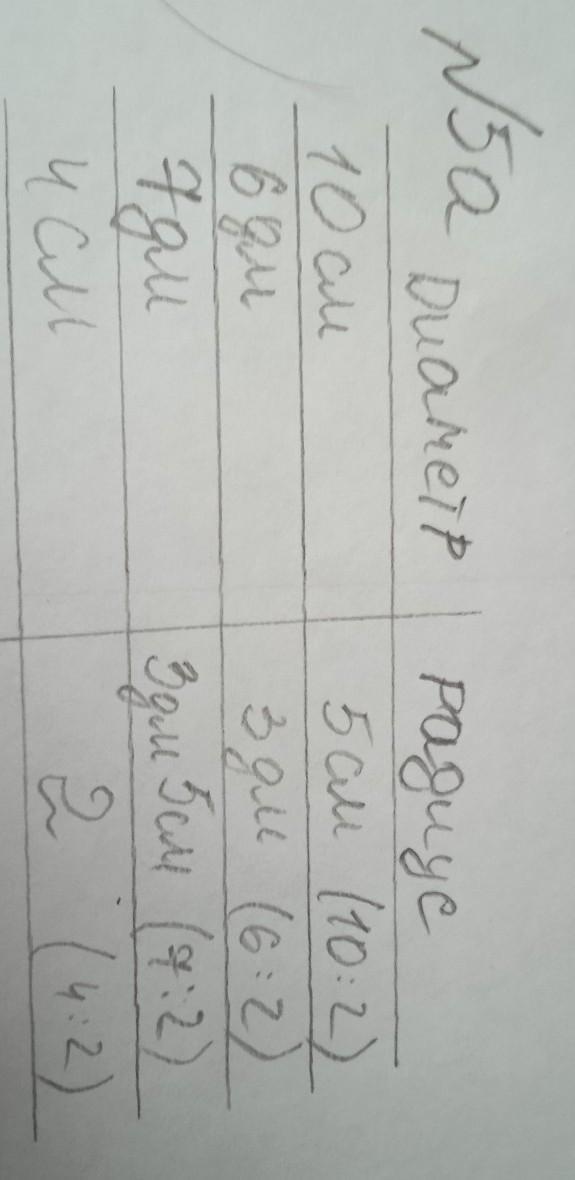 №5а Диаметр радиус
10 см 5см (10:2)
6 дм 3 дм (6:2)
7дм 3дм 5см (7:2)
4 см 2 (4:2)